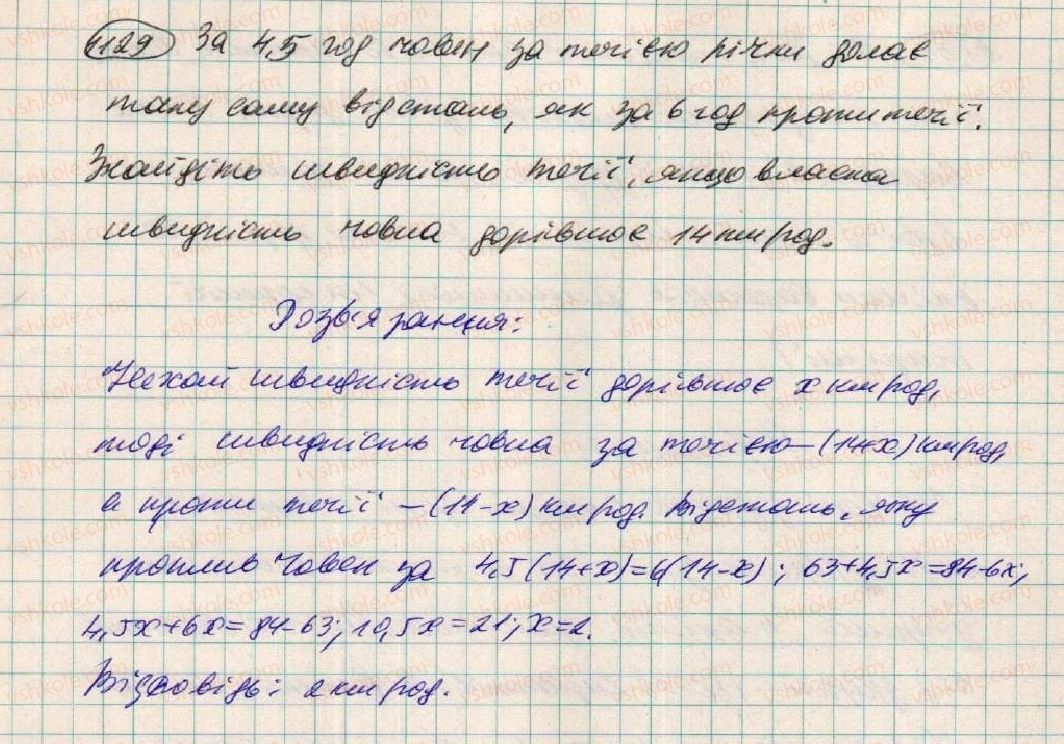 1129 За 4,5 год човен за течією річки долає
таку саму відстань, як за 6 год проти течії.
Знайдіть швидкість течії, якщо власна
швидкість човна дорівнює 14 км/год.
Розв'язання:
Нехай швидкість течії дорівнює х км/год,
тоді швидкість човна за течією – (14+х) км/год,
а проти течії – (14-х) км/год. Відстань, яку
проплив човен за 4,5(14+х)=6(14-х); 63+4,5х=84-6х;
4,5х+6х=84-63; 10,5х=21; х=2.
Відповідь: 2 км/год.